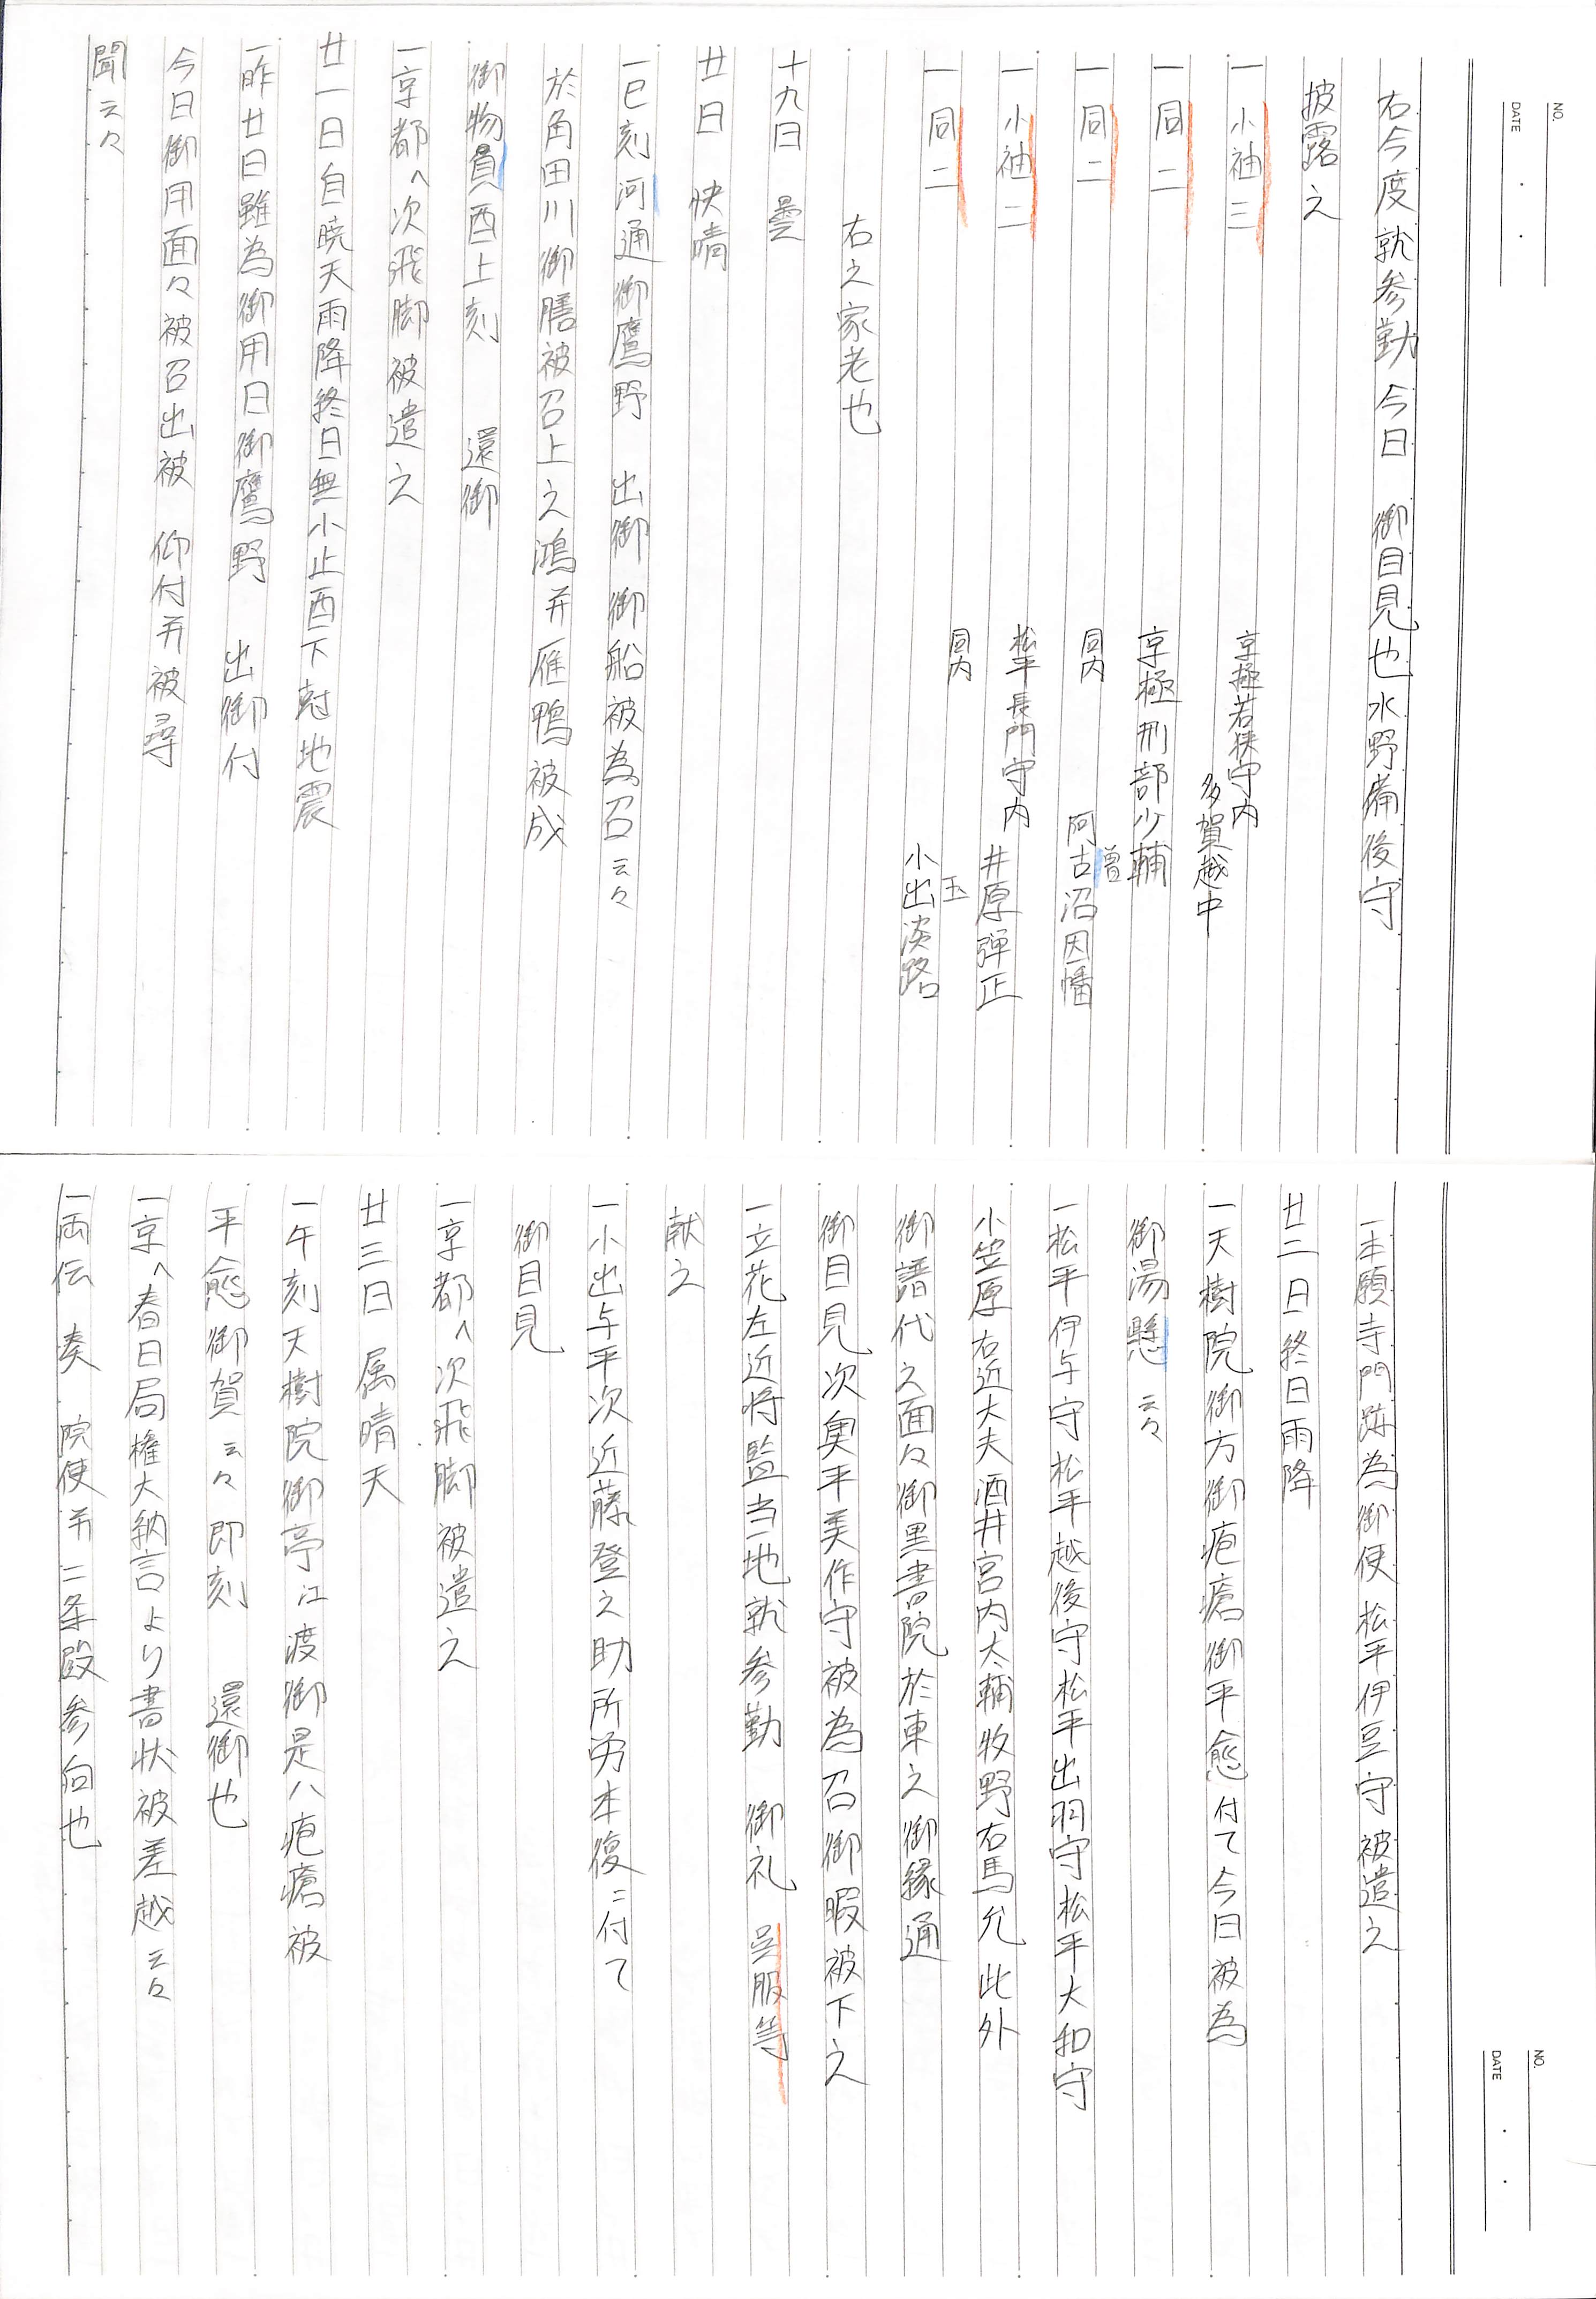 NO.
DATE
右今度就参勤今日　御目見也水野備後守
披露之
一小袖三　京極若狭守内　多賀越中
一同二　京極刑部少輔
一同二　同内　阿古沼因幡
曽
一小袖二　松平長門守内　井原弾正
一同二　同内　小出淡路
玉
右之家老也
十九日　曇
廿日　快晴
一巳刻河通御鷹野　出御　御船被為召云々
於角田川御膳被召上之鴻并雁鴨被成
御物員酉上刻　還御
一京都へ次飛脚被遣之
廿一日自暁天雨降終日無小止酉下刻地震
一昨廿日雖為御用日御鷹野　出御付
今日御用面々被召出被　仰付并被尋
聞云々
NO.
DATE
一本願寺門跡為御使松平伊豆守被遣之
廿二日終日雨降
一天樹院御方御疱瘡御平愈付て今日被為
御湯懸云々
一松平伊与守松平越後守松平出羽守松平大和守
小笠原右近大夫酒井宮内太輔牧野右馬允此外
御譜代之面々御黒書院於東之御縁通
御目見次奥平美作守被為召御暇被下之
一立花左近将監当地就参勤　御礼　呉服等
献之
一小出与平次近藤登之助所労本復ニ付て
御目見
一京都へ次飛脚被遣之
廿三日属晴天
一午刻天樹院御亭江渡御是ハ疱瘡被
平愈御賀云々即刻　還御也
一京へ春日局権大納言より書状被差越云々
一両伝奏　院使并二条殿参向也